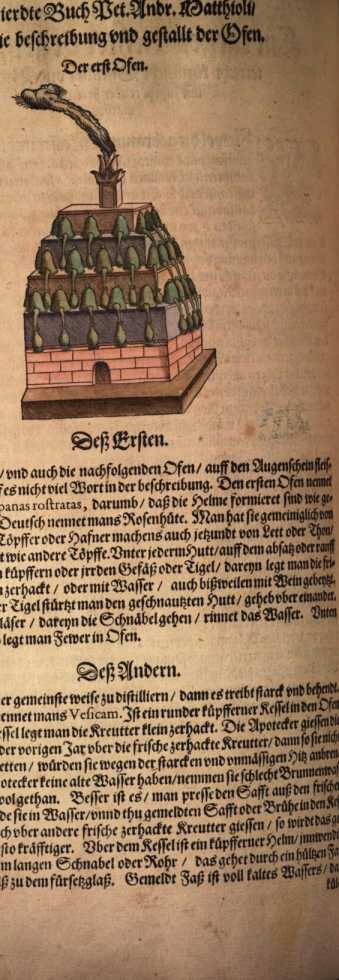 ierdte Buch Pet. Andr. Matthioli/
ie beschreibung vnd gestallt der Ofen.
Der erst Ofen.
Deß Ersten.
/ vnd auch die nachfolgenden Ofen / auff den Augenschein fleis-
es nicht viel Wort in der beschreibung. Den ersten Ofen nennet
panas rostratas, darumb / daß die Helme formieret sind wie ge-
Deutsch nennet mans Rosenhüte. Man hat sie gemeiniglich von
Töpffer oder Hafner machens auch jetzundt von Lett oder Thon/
t wie andere Töpffe. Vnter jederm Hutt / auff dem absatz oder ranfft
n küpffern oder jrrden Gefäß oder Tigel / dareyn legt man die fri-
n zerhackt / oder mit Wasser / auch bißweilen mit Wein gebeytzt.
er Tigel stürtzt man den geschnautzten Hutt / geheb vber einander.
läser / dareyn die Schnäbel gehen / rinnet das Wasser. Vnten
legt man Fewer in Ofen.
Deß Andern.
er gemeinste weise zu distilliern / dann es treibt starck vnd behendt.
ennet mans Vesicam. Ist ein runder küpfferner Kessel in den Ofen
essel legt man die Kreutter klein zerhackt. Die Apotecker giessen die
der vorigen Jar vber die frische zerhackte Kreutter / dann so sie nicht
etten / würden sie wegen der starcken vnd vnmässigen Hitz anbren
otecker keine alte Wasser haben / nemmen sie schlecht Brunnenwas
woolgethan. Besser ist es / man presse den Safft auß den frischen
de sie in Wasser / vnnd thu gemeldten Safft oder Brühe in den Kes
ch vber andere frische zerhackte Kreutter giessen / so wirdt das ge
sto kräfftiger. Vber dem Kessel ist ein küpfferner Helm / innwendi
m langen Schnabel oder Rohr / das gehet durch ein hültzen Faß
ß zu dem fürsetzglaß. Gemeldt Faß ist voll kaltes Wassers / da
küle